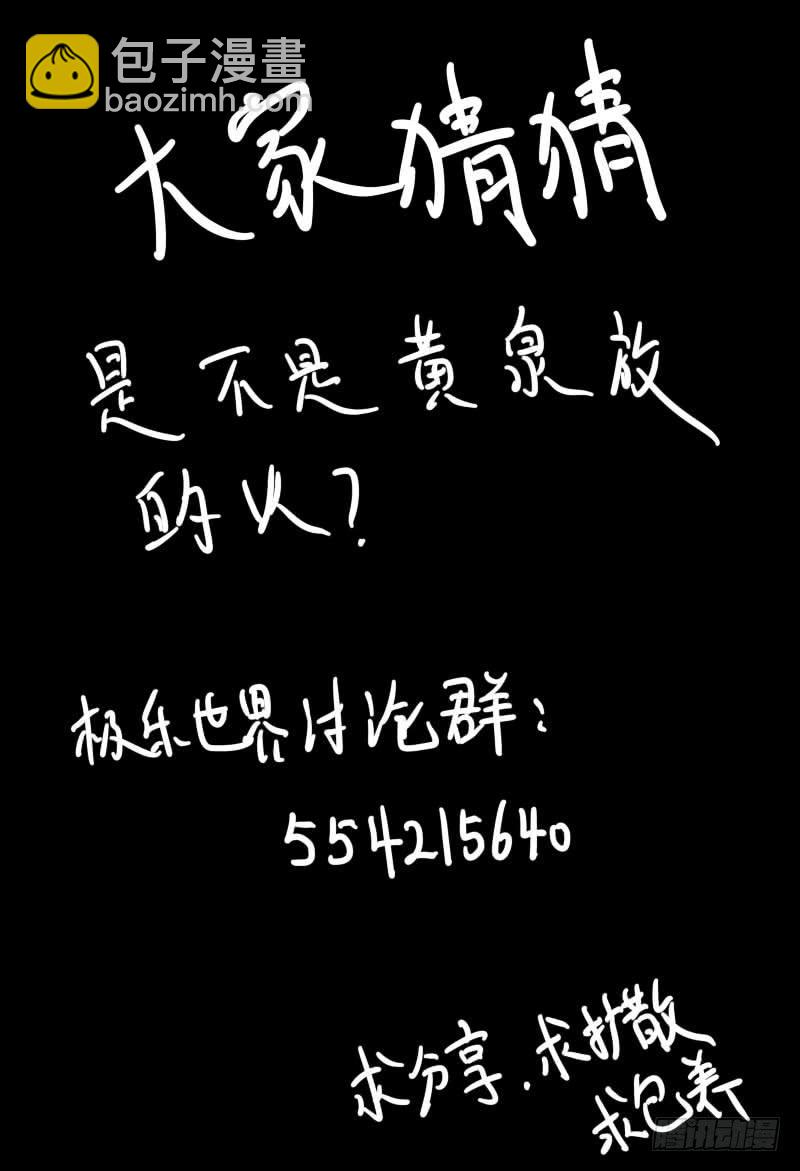 包子漫畫
baozimh.com
大家猜猜
是不是黄泉放
的火？
极乐世界讨论群：
554215640
求分享.求扩散
求包养
腾讯动漫